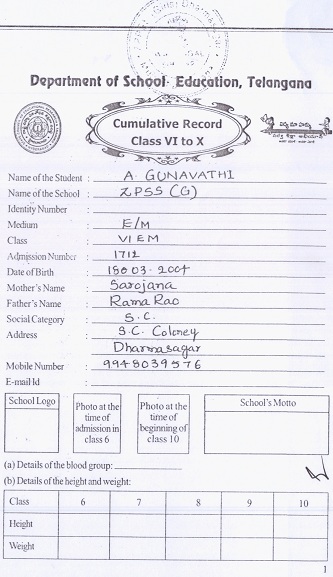 Department of School Education, Telangana
Cumulative Record
Class VI to X
Name of the Student : A. GUNAVATHI
Name of the School : ZPSS (G)
Identity Number :
Medium : E/M
Class : VI EM
Admission Number : 1712
Date of Birth :
Mother's Name : Sarojana
Father's Name : Rama Rao
Social Category : S.C.
Address : S.C. Coloney
Dharmasagar
Mobile Number : 9948039576
E-mail Id :
School Logo
Photo at the time of admission in class 6
Photo at the time of beginning of class 10
School's Motto
(a) Details of the blood group:
(b) Details of the height and weight:
Class 6 7 8 9 10
Height
Weight
1